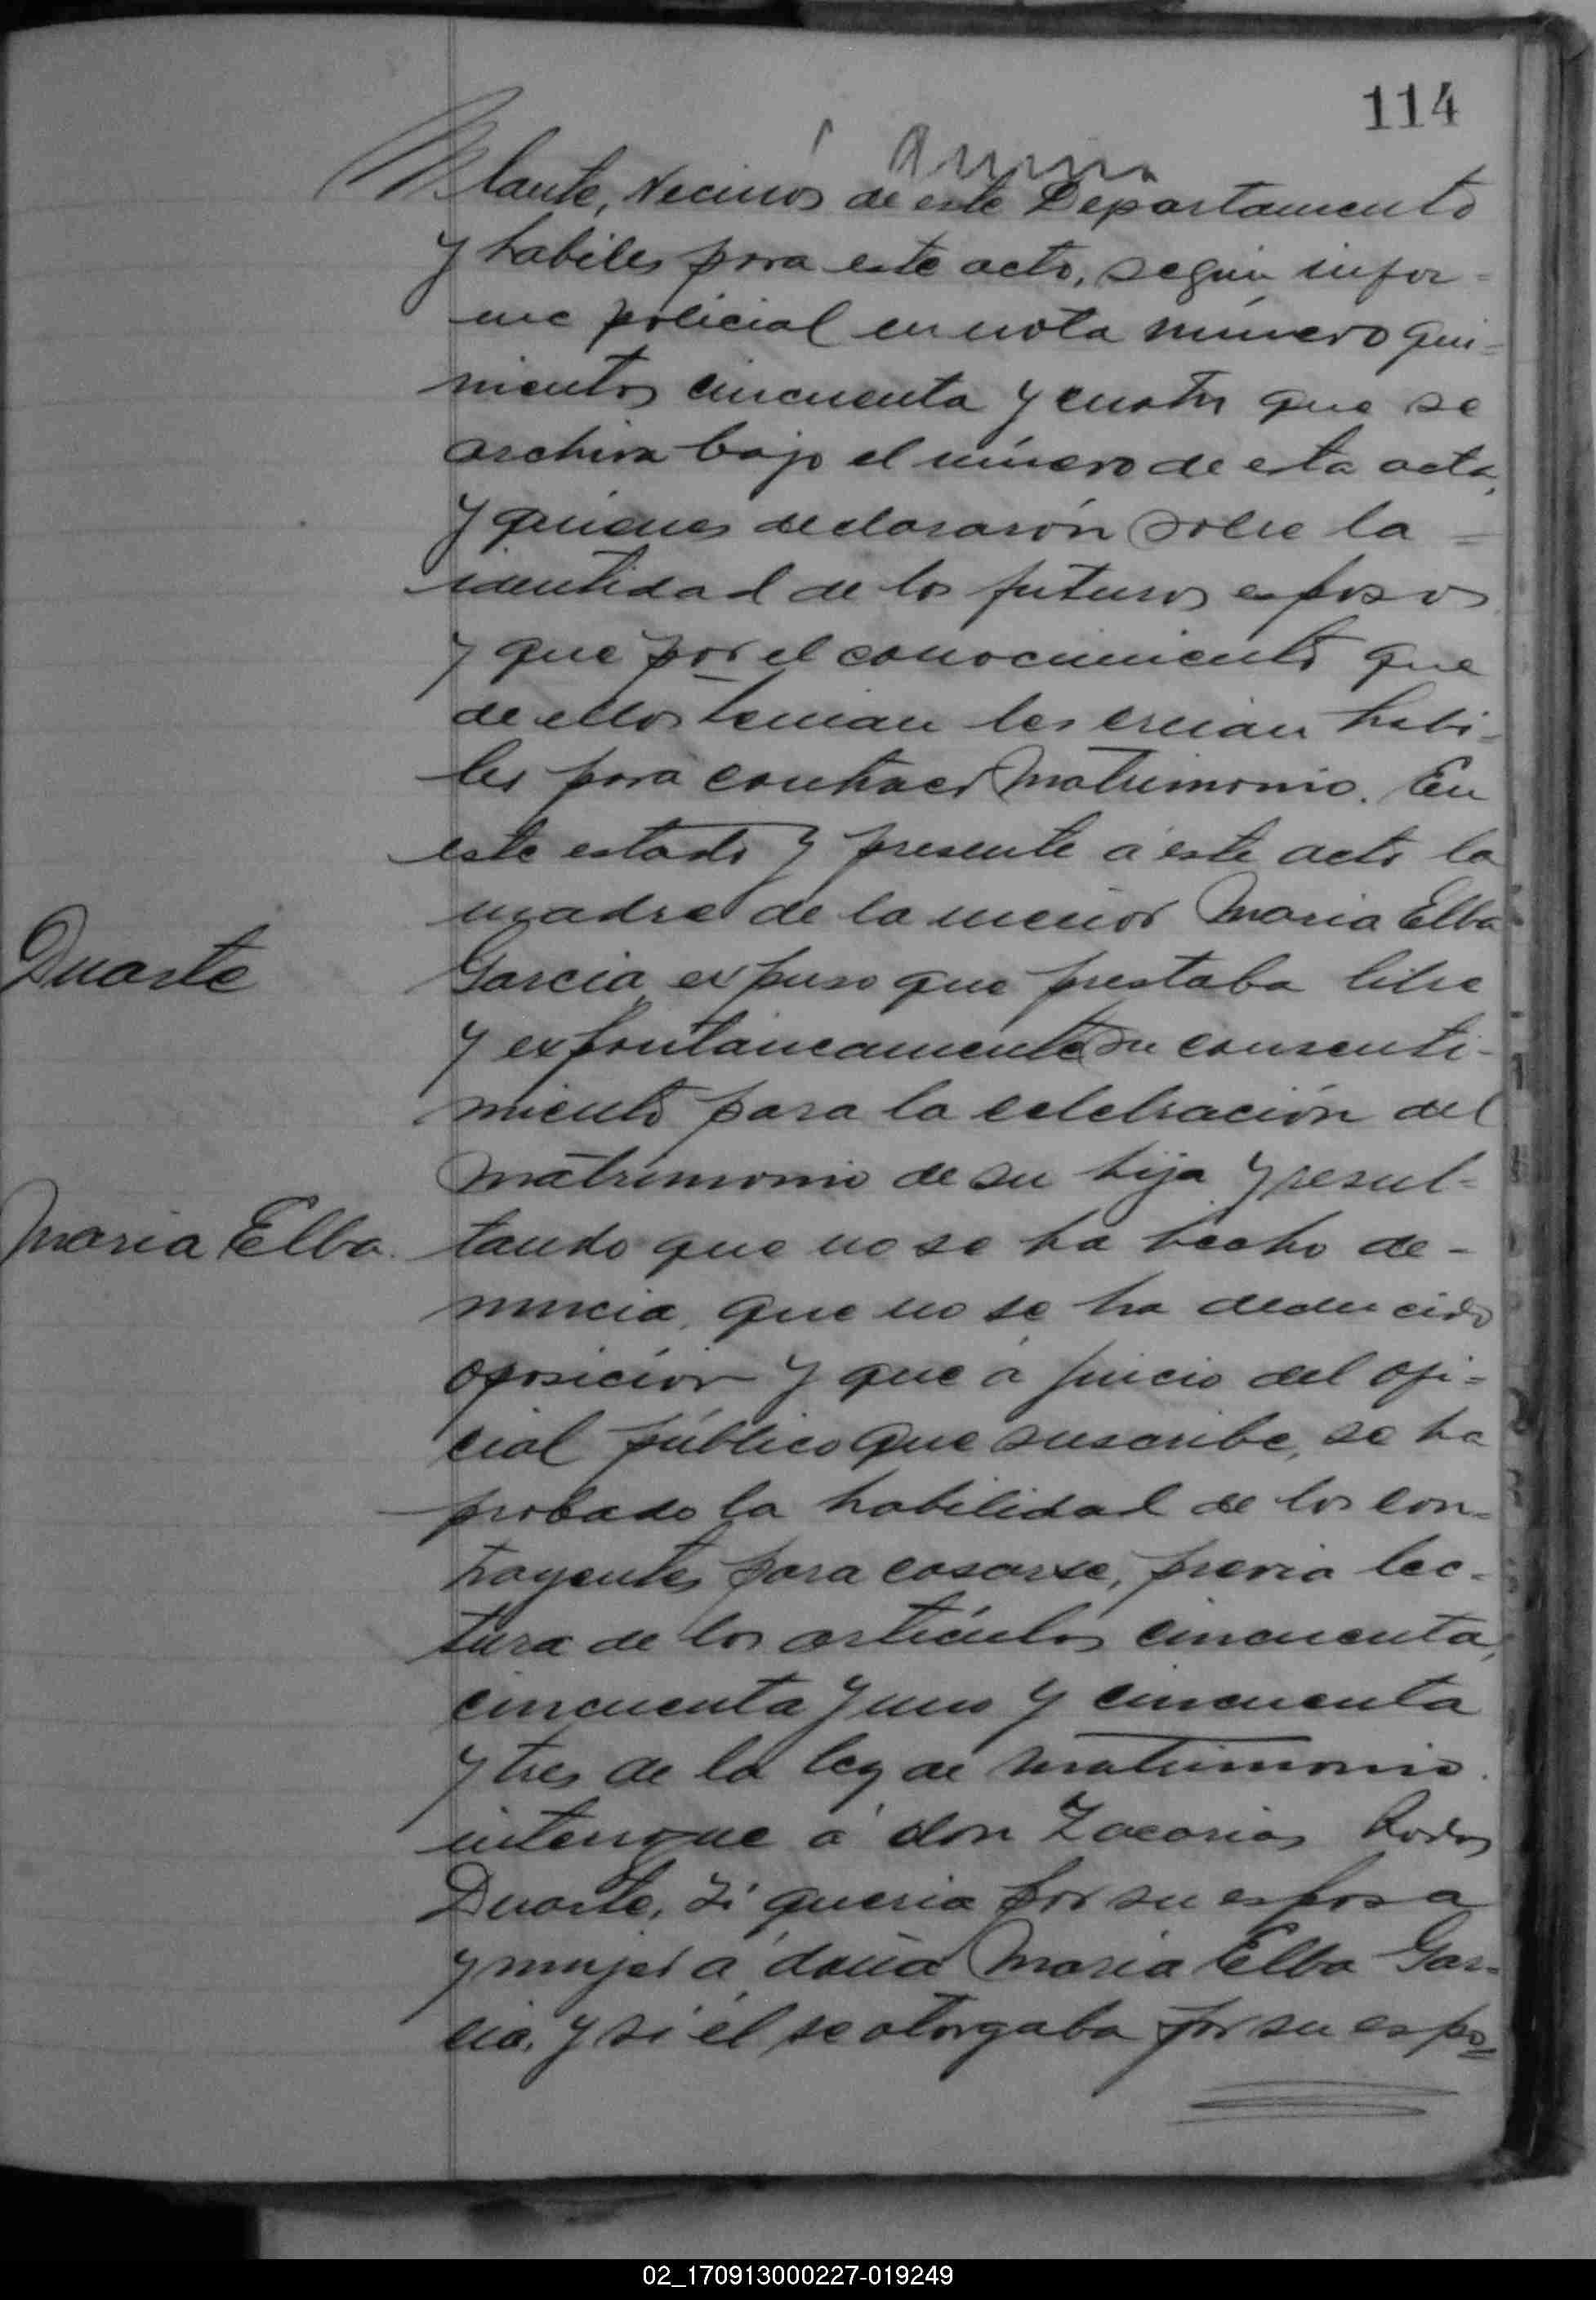 114
lante, vecinos de este Departamento
y habiles para este acto, según infor=
me policial en nota número qui=
nientos cincuenta y cuatro que se
archiva bajo el número de esta acta,
y quienes declararón sobre la =
identidad de los futuros esposos
y que por el conocimiento que
de ellos tenian les creian habi=
les para contraer matrimonio. En
este estado y presente á este acto la
madre de la menor Maria Elba
Duarte
Garcia, expuso que prestaba libre
y expontaneamente su consenti-
miento para la celebración del
matrimonio de su hija y resul=
Maria Elba.
tando que no se ha hecho de-
nuncia, que no se ha deducido
oposición y que á juicio del ofi=
cial público que suscribe, se ha
probado la habilidad de los con=
trayentes para casarse, previa lec-
tura de los artículos cincuenta,
cincuenta y uno y cincuenta
y tres de la ley de matrimonio.
interrogue á don Zacarias Rodas
Duarte, si queria por su esposa
y mujer á doña Maria Elba Gar=
cia, y si él se otorgaba por su espo=
02_170913000227-019249